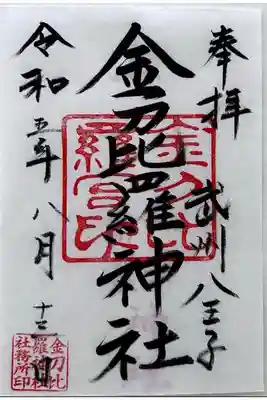 奉拝 武州八王子
金刀比羅神社
令和五年八月十三日
金刀比
羅神社
社務所印